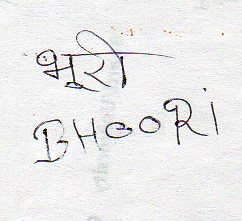 भूरी
BHOORI